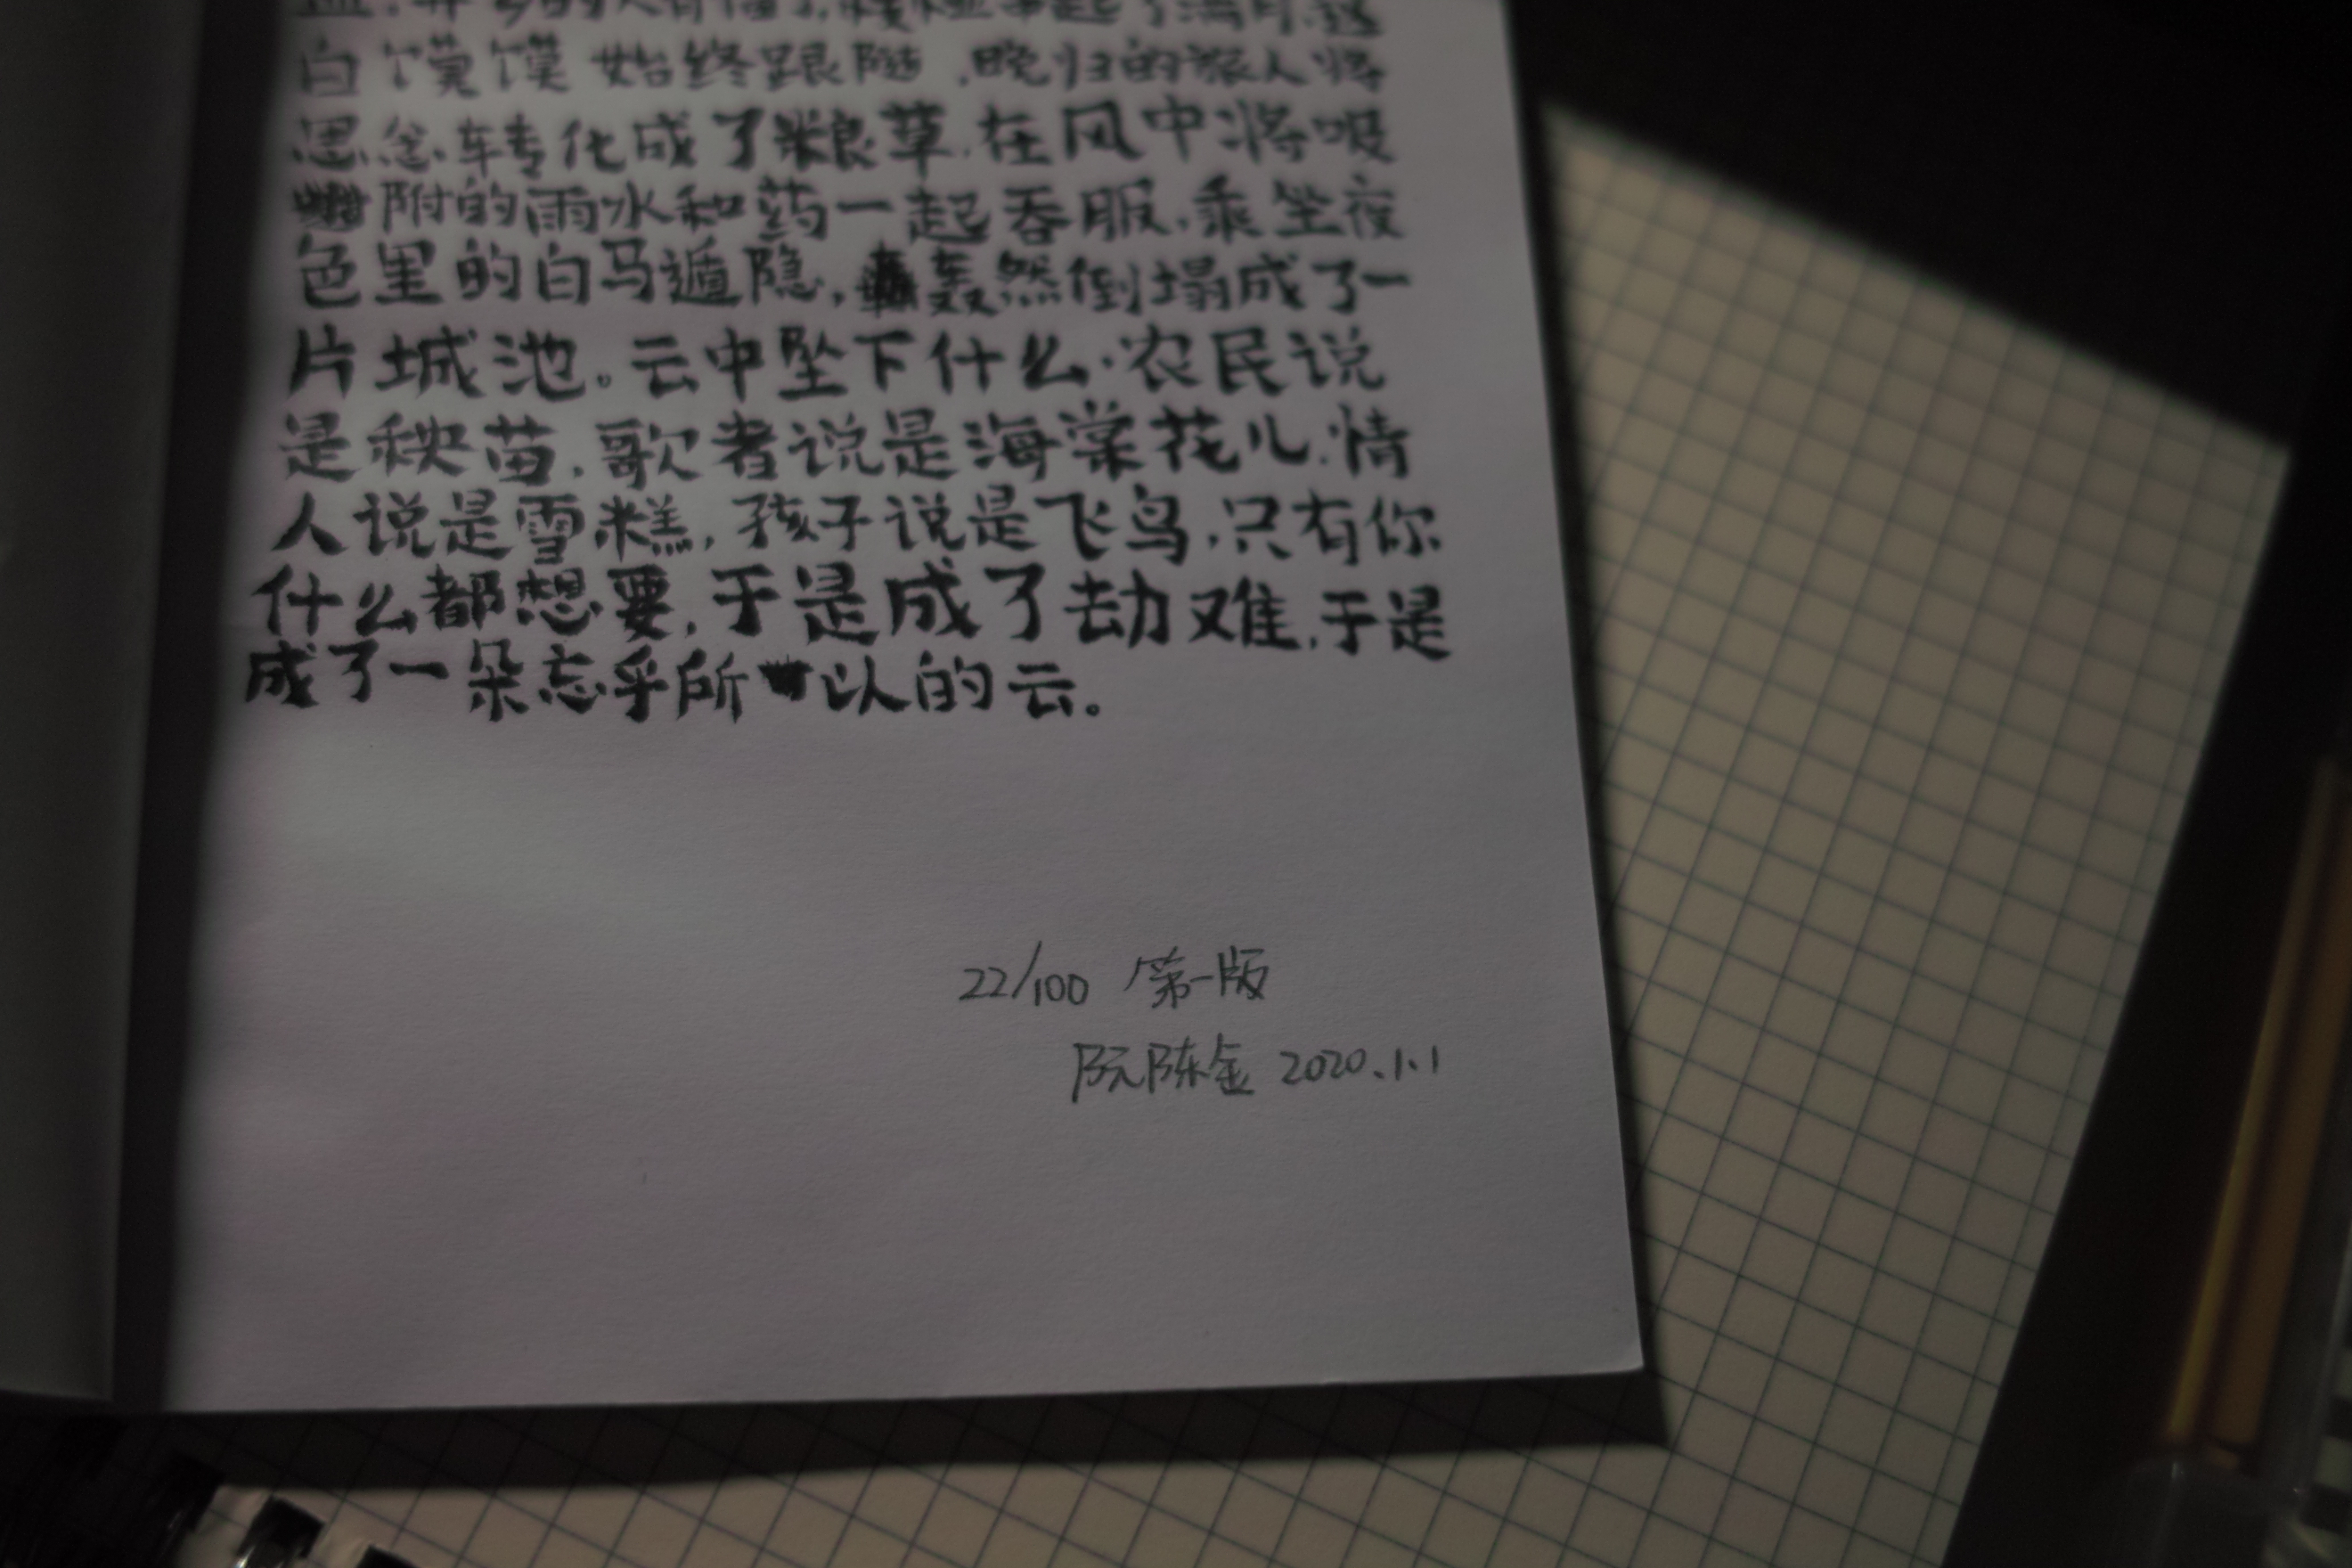 了满月,这
白馍馍始终跟随,晚归的旅人将
思念转化成了粮草,在风中将吸
附的雨水和药一起吞服,乘坐夜
色里的白马遁隐,轰然倒塌成了一
片城池。云中坠下什么,农民说
是秧苗,歌者说是海棠花儿,情
人说是雪糕,孩子说是飞鸟,只有你
什么都想要,于是成了劫难,于是
成了一朵忘乎所以的云。
22/100 第一版
阮陈金 2020.1.1